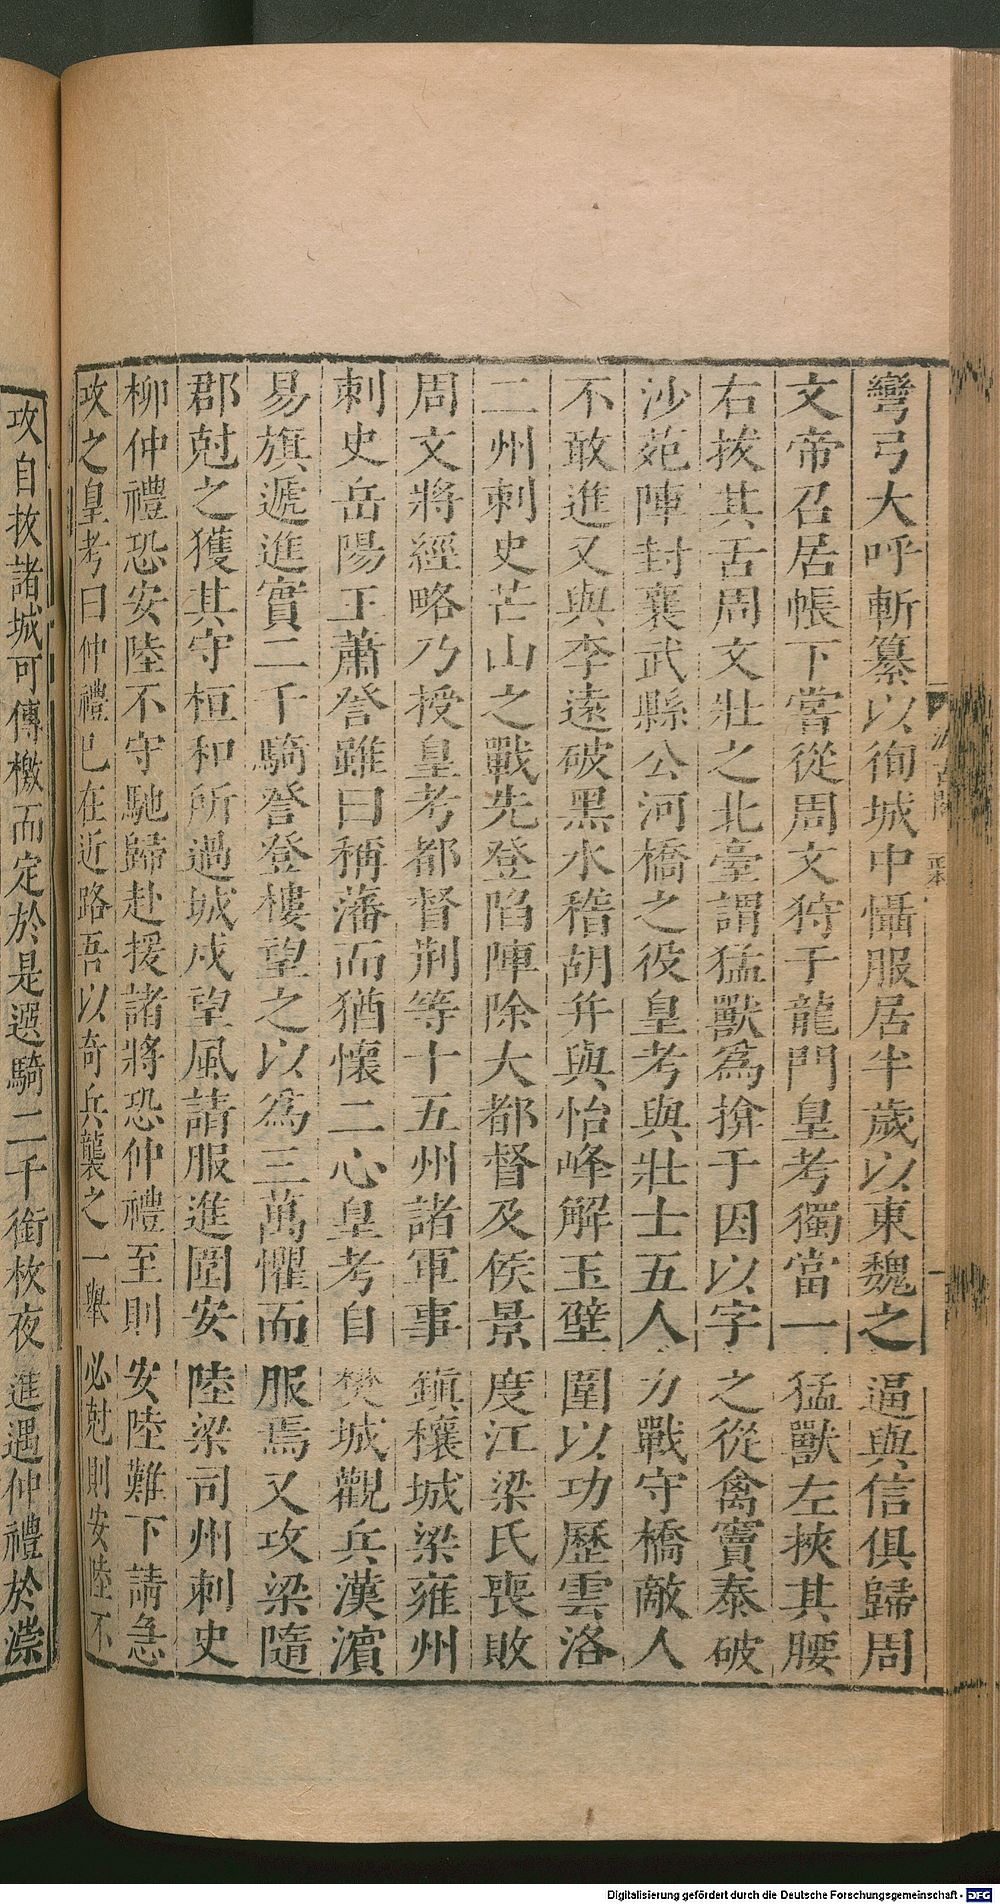 彎弓大呼斬纂以徇城中懾服居半歲以東魏之逼與信俱歸周
文帝召居帳下嘗從周文狩于龍門皇考獨當一猛獸左挾其腰
右拔其舌周文壯之北臺謂猛獸為揜于因以字之從禽竇泰破
沙苑陣封襄武縣公河橋之役皇考與壯士五人力戰守橋敵人
不敢進又與李遠破黑水稽胡并與怡峰解玉壁圍以功歷雲洛
二州刺史芒山之戰先登陷陣除大都督及侯景度江梁氏喪敗
周文將經略乃授皇考都督荆等十五州諸軍事鎮穰城梁雍州
刺史岳陽王蕭詧雖曰稱藩而猶懷二心皇考自樊城觀兵漢濱
易旗遞進實二千騎詧登樓望之以為三萬懼而服焉又攻梁隨
郡尅之獲其守桓和所過城戍望風請服進圍安陸梁司州刺史
柳仲禮恐安陸不守馳歸赴援諸將恐仲禮至則安陸難下請急
攻之皇考曰仲禮已在近路吾以奇兵襲之一舉必尅則安陸不
攻自拔諸城可傳檄而定於是選騎二千銜枚夜進遇仲禮於漴
汲古閣
正本
Digitalisierung gefördert durch die Deutsche Forschungsgemeinschaft - DFG